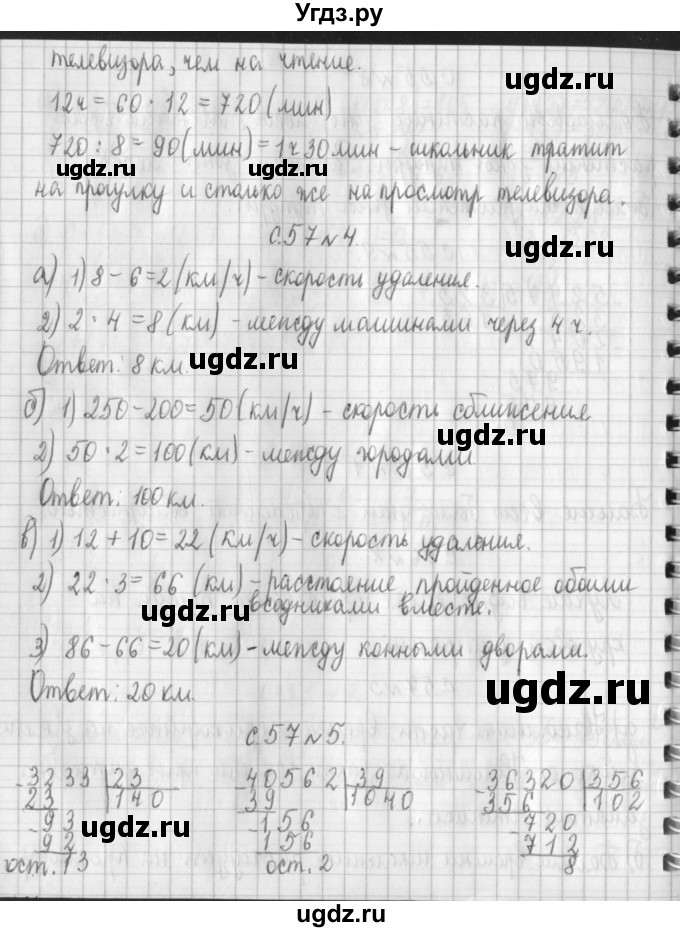 Угдз.ру
телевизора, чем на чтение.
ugdz.ru
12ч = 60 · 12 = 720 (мин)
720 : 8 = 90 (мин) = 1ч 30 мин – школьник тратит
ugdz.ru ugdz.ru
на прогулку и столько же на просмотр телевизора.
с.57 № 4.
ugdz.ru
а) 1) 8 – 6 = 2 (км/ч) – скорость удаления.
2) 2 · 4 = 8 (км) – между машинами через 4 ч.
Ответ: 8 км.
ugdz.ru
б) 1) 250 – 200 = 50 (км/ч) – скорость сближения
ugdz.ru
2) 50 · 2 = 100 (км) – между городами
Ответ: 100 км.
в) 1) 12 + 10 = 22 (км/ч) – скорость удаления.
2) 22 · 3 = 66 (км) – расстояние, пройденное обоими
всадниками вместе.
ugdz.ru
3) 86 – 66 = 20 (км) – между конными дворами.
Ответ: 20 км.
ugdz.ru
с.57 № 5.
3233 | 23 40562 | 39 36320 | 356
23 | 140 39 | 1040 356 | 102
93 156 720
92 156 712
ост. 13 ост. 2 8
ugdz.ru ugdz.ru
ugdz.ru